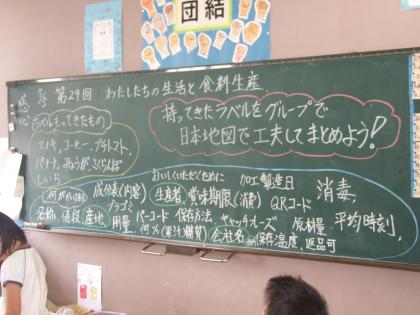 団結
感心
9/5 第29回 わたしたちの生活と食料生産
ラベルもってきたもの
エノキ、コーヒー、プチトマト、
バナナ、みょうが、さくらんぼ
しいら
持ってきたラベルをグループで
日本地図で工夫してまとめよう!
おいしくいただくために 加工製造日
何がかいてあるか 成分表(内容) 生産者、賞味期限(消費) QRコード 消毒、
プラゴミ
名称、値段、産地、用量、バーコード 保存方法、キャッチフレーズ 原材量、平均時刻、
何%(果汁、糖質) 会社名 保存温度、返品可